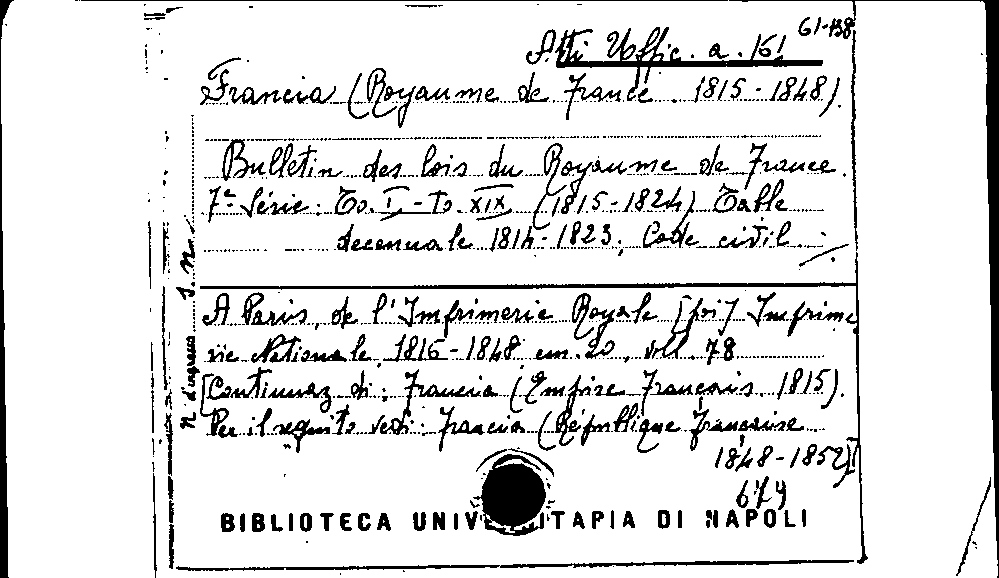 61-138
Atti Uffic. a. 151
Francia (Royaume de France. 1815-1848).
Bulletin des lois du Royaume de France.
7e Série: To. I - To. XIX (1815-1824) Table
decennale 1814-1823; Code civil.
A Paris, de l'Imprimerie Royale [poi] Imprime
rie Nationale, 1816-1848 cm. 20, voll. 78
[Continuaz. di: Francia (Empire Français, 1815).
Per il seguito vedi: Francia (République Française
1848-1852)]
679
N. d'ingresso S. N.
BIBLIOTECA UNIV ITARIA DI NAPOLI